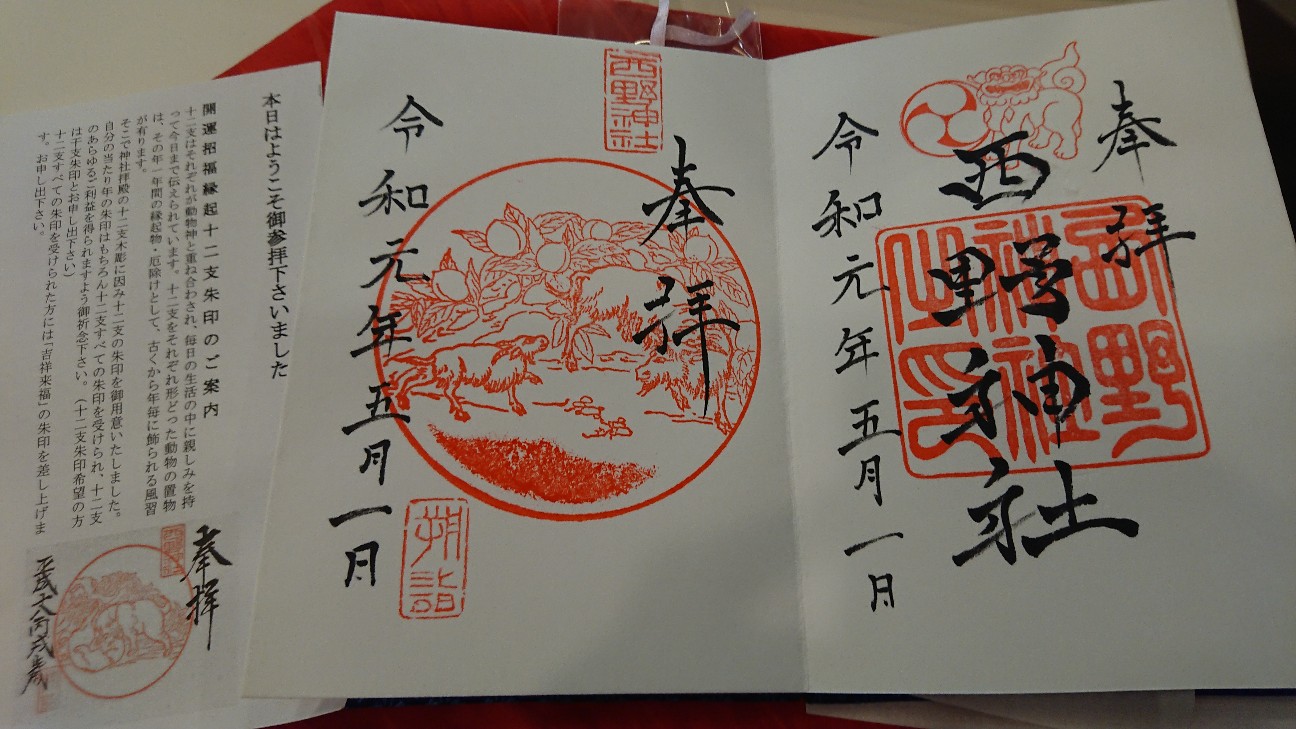 奉拝
西野神社
西野神社之印
令和元年五月一日
西野神社
奉拝
令和元年五月一日
朔詣
本日はようこそ御参拝下さいました
開運招福縁起十二支朱印のご案内
十二支はそれぞれが動物神と重ね合わされ、毎日の生活の中に親しみを持
って今日まで伝えられています。十二支をそれぞれ形どった動物の置物
は、その年一年間の縁起物・厄除けとして、古くから年毎に飾られる風習
が有ります。
そこで神社拝殿の十二支木彫に因み十二支の朱印を御用意いたしました。
自分の当たり年の朱印はもちろん十二支すべての朱印を受けられ、十二支
のあらゆるご利益を得られますよう御祈念下さい。(十二支朱印希望の方
は干支朱印とお申し出下さい)
十二支すべての朱印を受けられた方には「吉祥来福」の朱印を差し上げま
す。お申し出下さい。
奉拝
平成十八丙戌歳